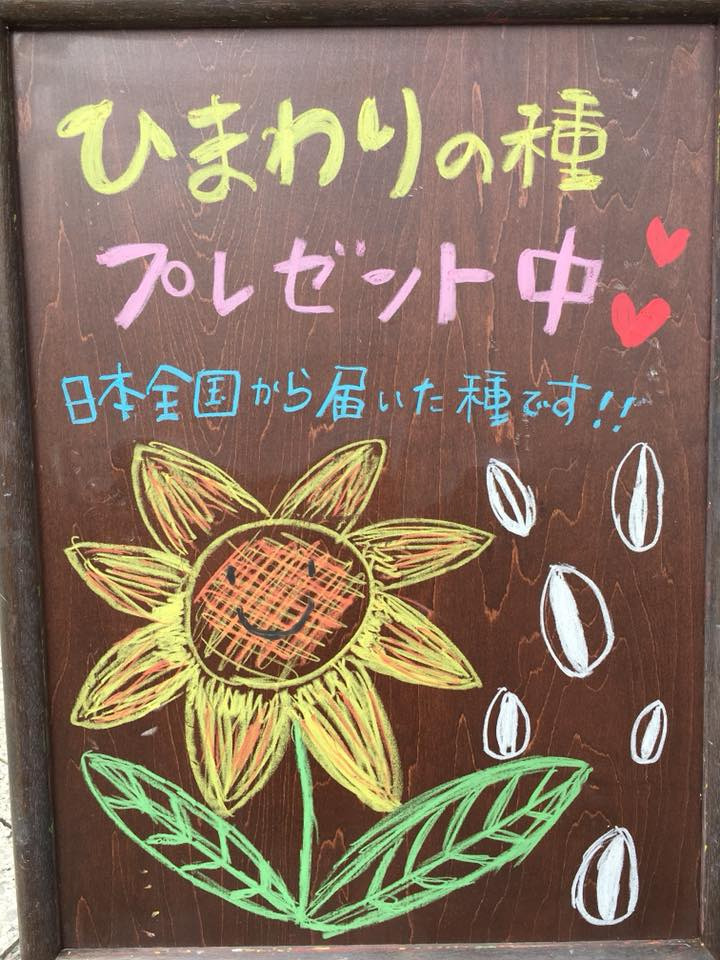 ひまわりの種
プレゼント中
日本全国から届いた種です!!